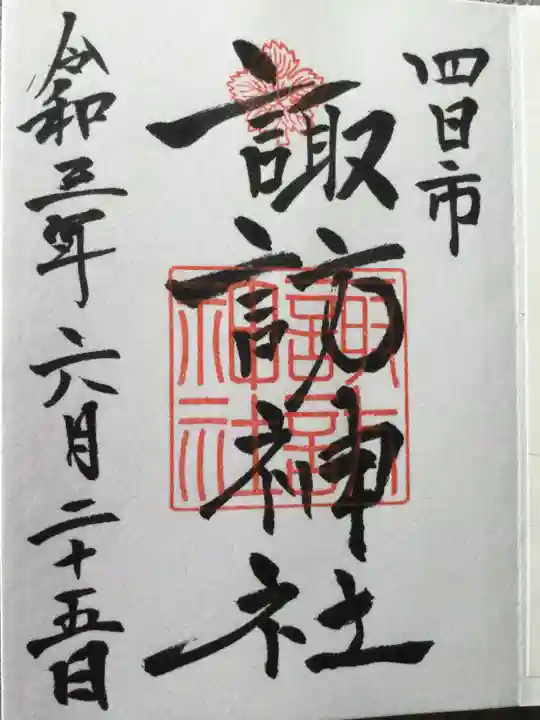 四日市
諏訪神社
諏訪
神社
令和三年六月二十五日